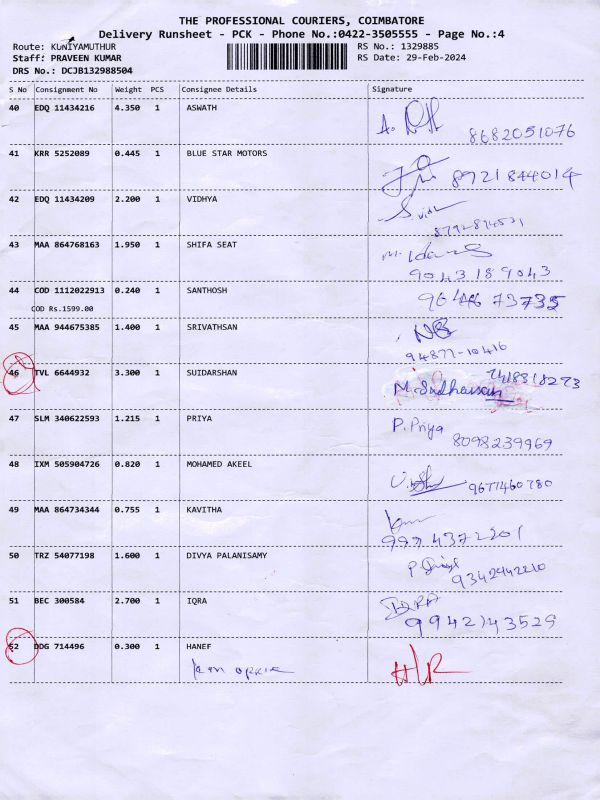 THE PROFESSIONAL COURIERS, COIMBATORE
Delivery Runsheet - PCK - Phone No.:0422-3505555 - Page No.:4
Route: KUNIYAMUTHUR RS No.: 1329885
Staff: PRAVEEN KUMAR RS Date: 29-Feb-2024
DRS No.: DCJB132988504
S No Consignment No Weight PCS Consignee Details Signature
40 EDQ 11434216 4.350 1 ASWATH
8682051076
41 KRR 5252089 0.445 1 BLUE STAR MOTORS
8921844014
42 EDQ 11434209 2.200 1 VIDHYA
43 MAA 864768163 1.950 1 SHIFA SEAT
9043189043
44 COD 1112022913 0.240 1 SANTHOSH
COD Rs.1599.00
45 MAA 944675385 1.400 1 SRIVATHSAN
94877-10416
46 TVL 6644932 3.300 1 SUIDARSHAN
7418318273
M. Sudharsan
47 SLM 340622593 1.215 1 PRIYA P. Priya
8098239969
48 IXM 505904726 0.820 1 MOHAMED AKEEL
9677460780
49 MAA 864734344 0.755 1 KAVITHA
50 TRZ 54077198 1.600 1 DIVYA PALANISAMY
9342942210
51 BEC 300584 2.700 1 IQRA IQRA
9942143529
52 DDG 714496 0.300 1 HANEF
H/R